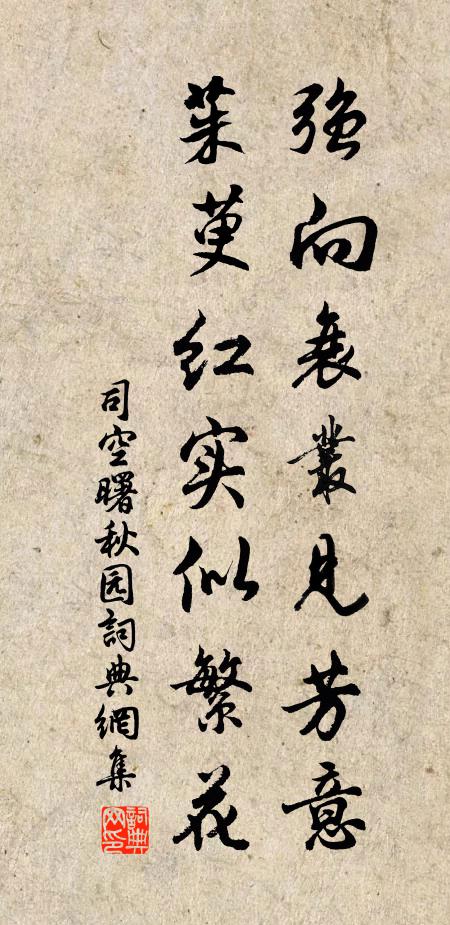 强向衰叢見芳意
茱萸红实似繁花
司空曙秋园詞典網集
詞典网印